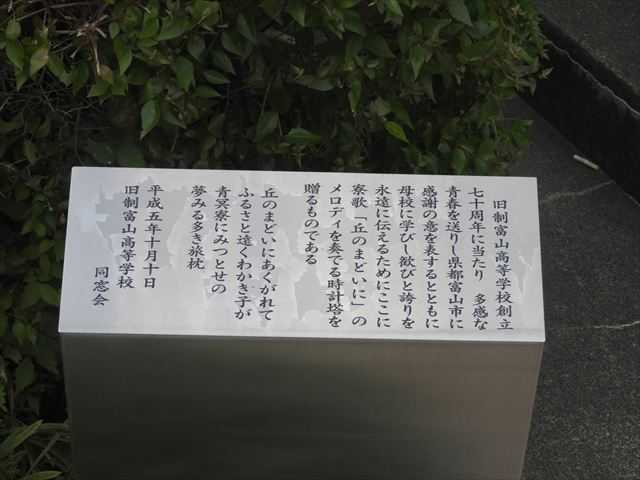 旧制富山高等学校創立
七十周年に当たり　多感な
青春を送りし県都富山市に
感謝の意を表するとともに
母校に学びし歓びと誇りを
永遠に伝えるためにここに
寮歌「丘のまどいに」の
メロディを奏でる時計塔を
贈るものである
丘のまどいにあくがれて
ふるさと遠くわかき子が
青冥寮にみつとせの
夢みる多き旅枕
平成五年十月十日
旧制富山高等学校
同窓会